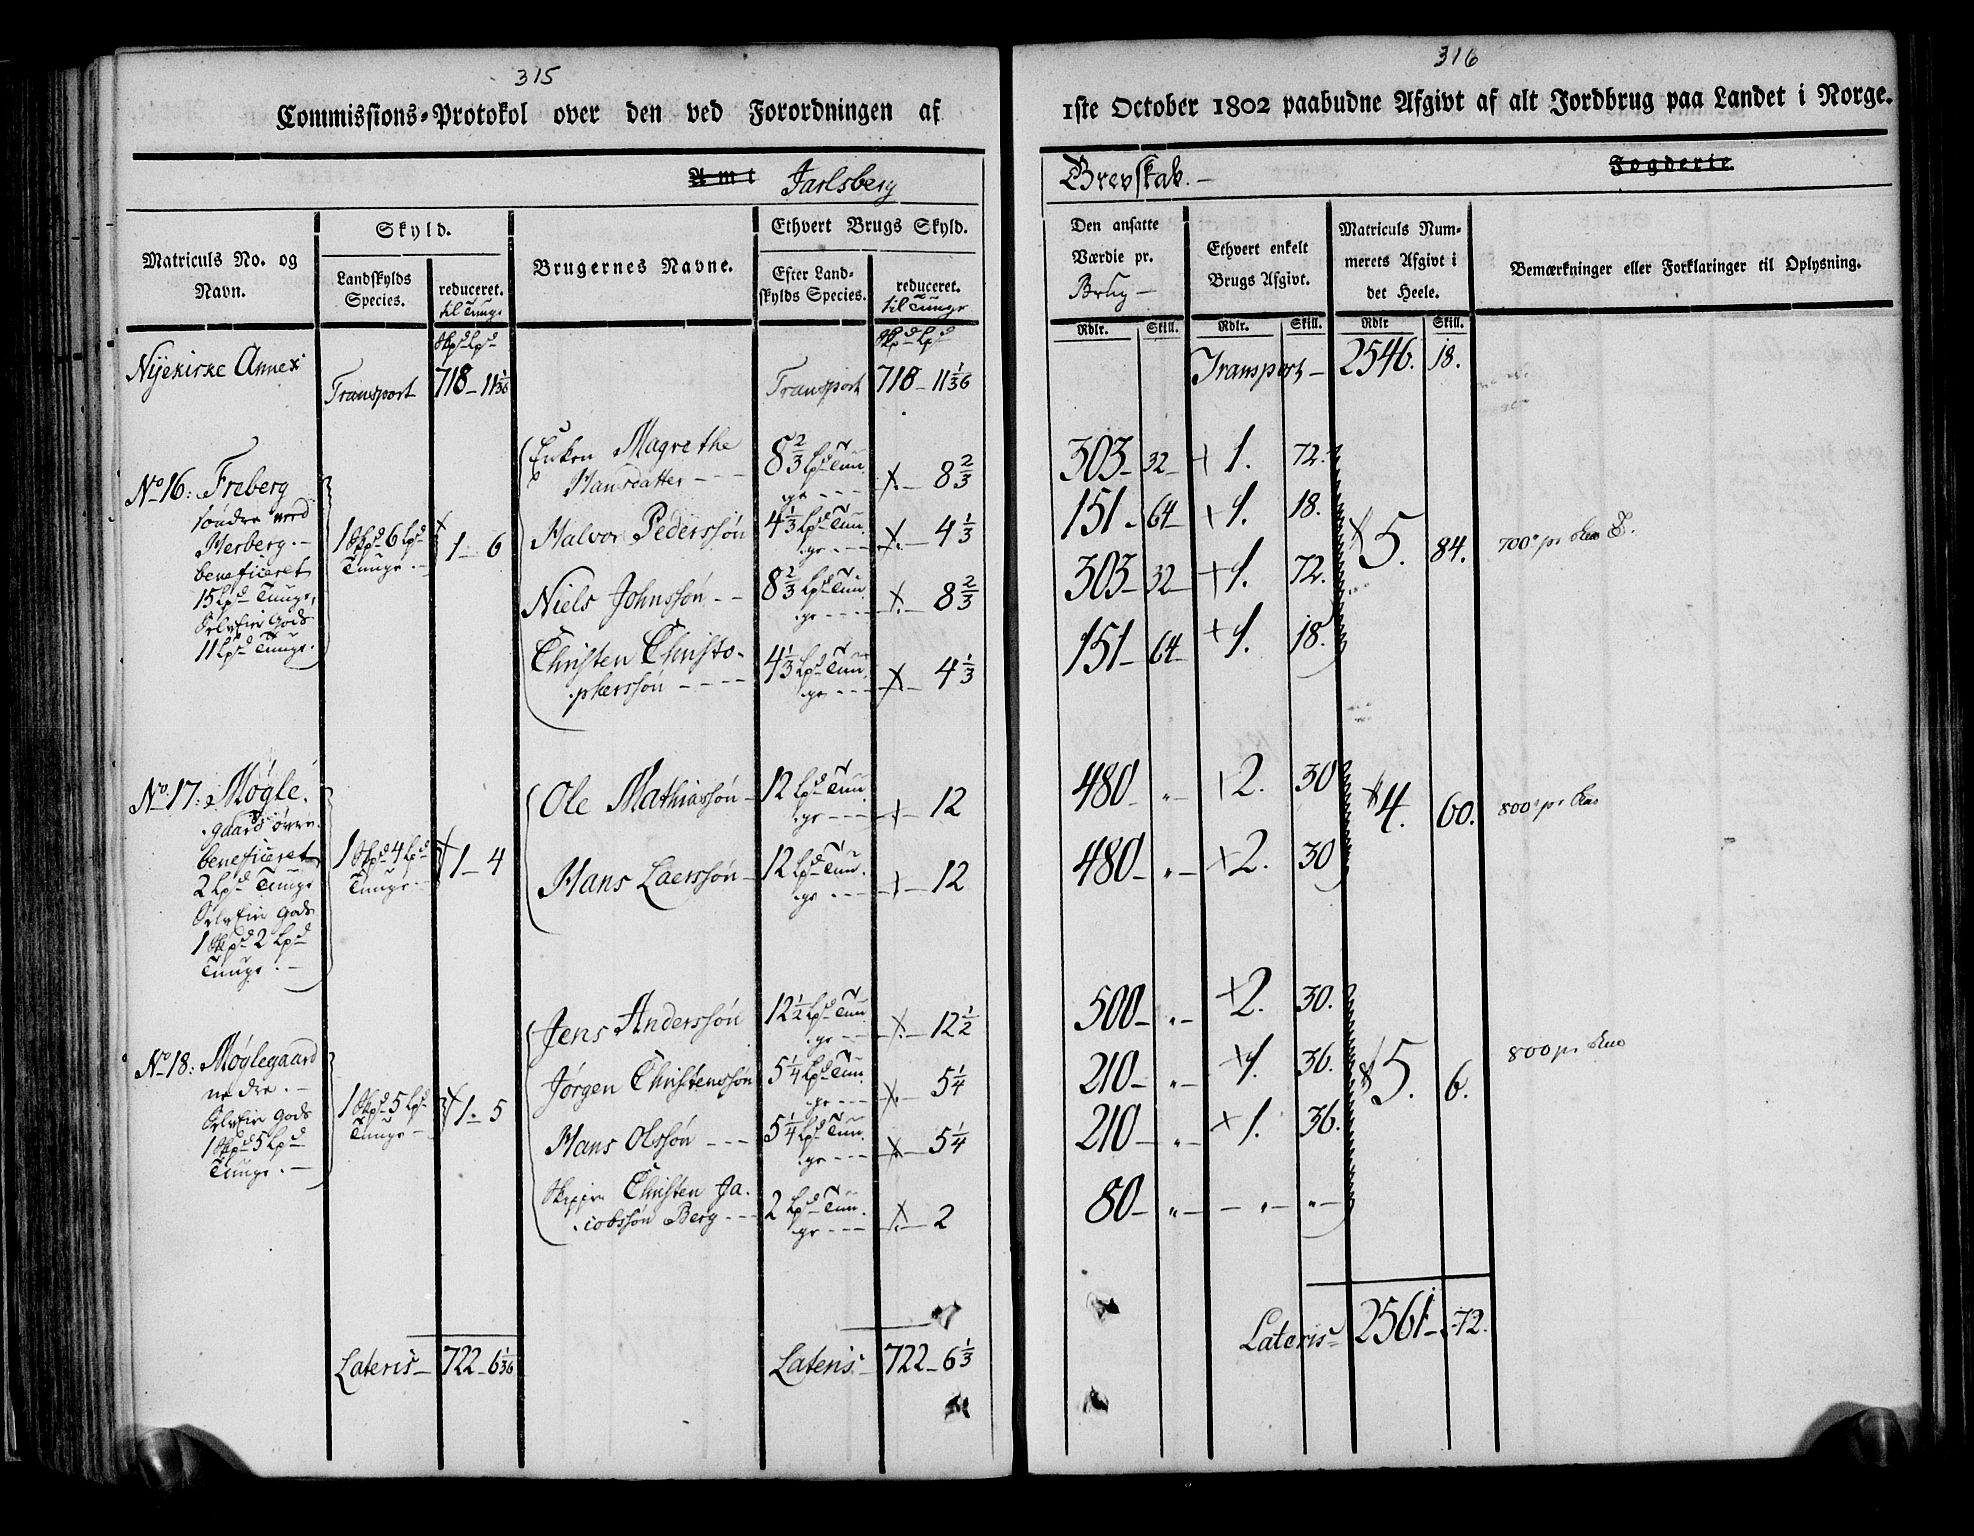 315
Commissions-Protokol over den ved Forordningen af
Amt Jarlsberg
Matriculs No. og Navn.
Skyld.
Landskylds Species.
reduceret. til Tunge
Brugernes Navne.
Ethvert Brugs Skyld.
Efter Landskylds Species.
reduceret. til Tunge
Skpd Lpd
Skpd Lpd
Nÿekirke Annex
Transport 718 - 11 1/36
Transport 718 - 11 1/36
No 16: Freberg
søndre med
Herberg. -
beneficeret
15 Lpd Tunge,
Selveier Gods
11 Lpd Tunge.
1 Skpd 6 Lpd
Tunge. -
1 - 6
Enken Magrethe
Hansdatter - - -
8 2/3 Lpd Tun
ge - - -
8 2/3
Halvor Pederssøn
4 1/3 Lpd Tun
ge - - -
4 1/3
Niels Johnssøn - -
8 2/3 Lpd Tun
ge - - -
8 2/3
Christen Christo-
pherssøn - - - -
4 1/3 Lpd Tun
ge - - -
4 1/3
No 17: Møgle
gaard øvre
beneficeret
2 Lpd Tunge
Selveier Gods
1 Skpd 2 Lpd
Tunge. -
1 Skpd 4 Lpd
Tunge -
1 - 4
Ole Mathiassøn -
12 Lpd Tun
ge - - -
12
Hans Laerssøn -
12 Lpd Tun
ge - - -
12
No 18: Møglegaard
nedre. -
Selveier Gods
1 Skpd 5 Lpd
Tunge. -
1 Skpd 5 Lpd
Tunge -
1 - 5
Jens Anderssøn
12 1/2 Lpd Tun
ge - -
12 1/2
Jørgen Christenssøn
5 1/4 Lpd Tun
ge - - -
5 1/4
Hans Olssøn - - -
5 1/4 Lpd Tun
ge - - -
5 1/4
Skipper Christen Ja-
cobssøn Berg - - -
2 Lpd Tun
ge - - -
2
Lateris - 722 - 6 1/36
Lateris - 722 - 6 1/3
316
1ste October 1802 paabudne Afgivt af alt Jordbrug paa Landet i Norge.
Grevskab. -
Fogderie.
Den ansatte Værdie pr. Brug -
Ethvert enkelt Brugs Afgivt.
Matriculs Nummerets Afgivt i det Heele.
Bemærkninger eller Forklaringer til Oplysning.
Rdlr. Skill. Rdlr. Skill. Rdlr Skill.
Transport - 2546. 18.
303 - 32 - 1. 72.
151 - 64 - 1. 18.
5. 84.
700
303 - 32 - 1. 72.
151 - 64 - 1. 18.
480 - „ - 2. 30
4. 60.
800
480 - „ - 2. 30
500 - „ - 2. 30.
210 - „ - 1. 36.
5. 6.
800
210 - „ - 1. 36.
80 - „ - - „ - „ -
Lateris - 2561 - 72.